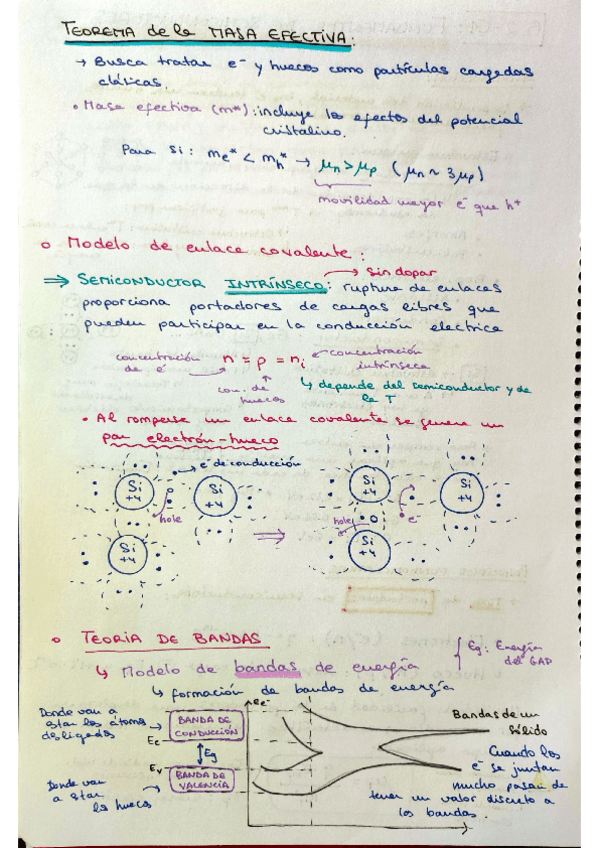 TEOREMA de la MASA EFECTIVA:
→ Busca tratar e⁻ y huecos como partículas cargadas
clásicas.
• Masa efectiva (m*): incluye los efectos del potencial
cristalino.
Para Si: me* < mh* → μn > μp (μn ~ 3μp)
movilidad mayor e⁻ que h⁺
o Modelo de enlace covalente:
→ sin dopar
⇒ SEMICONDUCTOR INTRÍNSECO: ruptura de enlaces
proporciona portadores de cargas libres que
pueden participar en la conducción electrica
concentración
de e⁻
n = p = ni
concentración
intrínseca
con. de
huecos
↳ depende del semiconductor y de
la T
• Al romperse un enlace covalente se genera un
par electrón-hueco
e⁻ de conducción
Si
+4
Si
+4
hole
Si
+4
⇒
Si
+4
Si
+4
hole
e⁻
Si
+4
o TEORÍA DE BANDAS
Eg: Energía
del GAP
↳ Modelo de bandas de energía
↳ formación de bandas de energía
Donde van a
estar los átomos
desligados
BANDA DE
CONDUCCIÓN
Ec
Eg
Ev
BANDA DE
VALENCIA
Donde van
a estar
los huecos
Ee⁻
Bandas de un
sólido
Cuando los
e⁻ se juntan
mucho pasan de
tener un valor discreto a
las bandas.